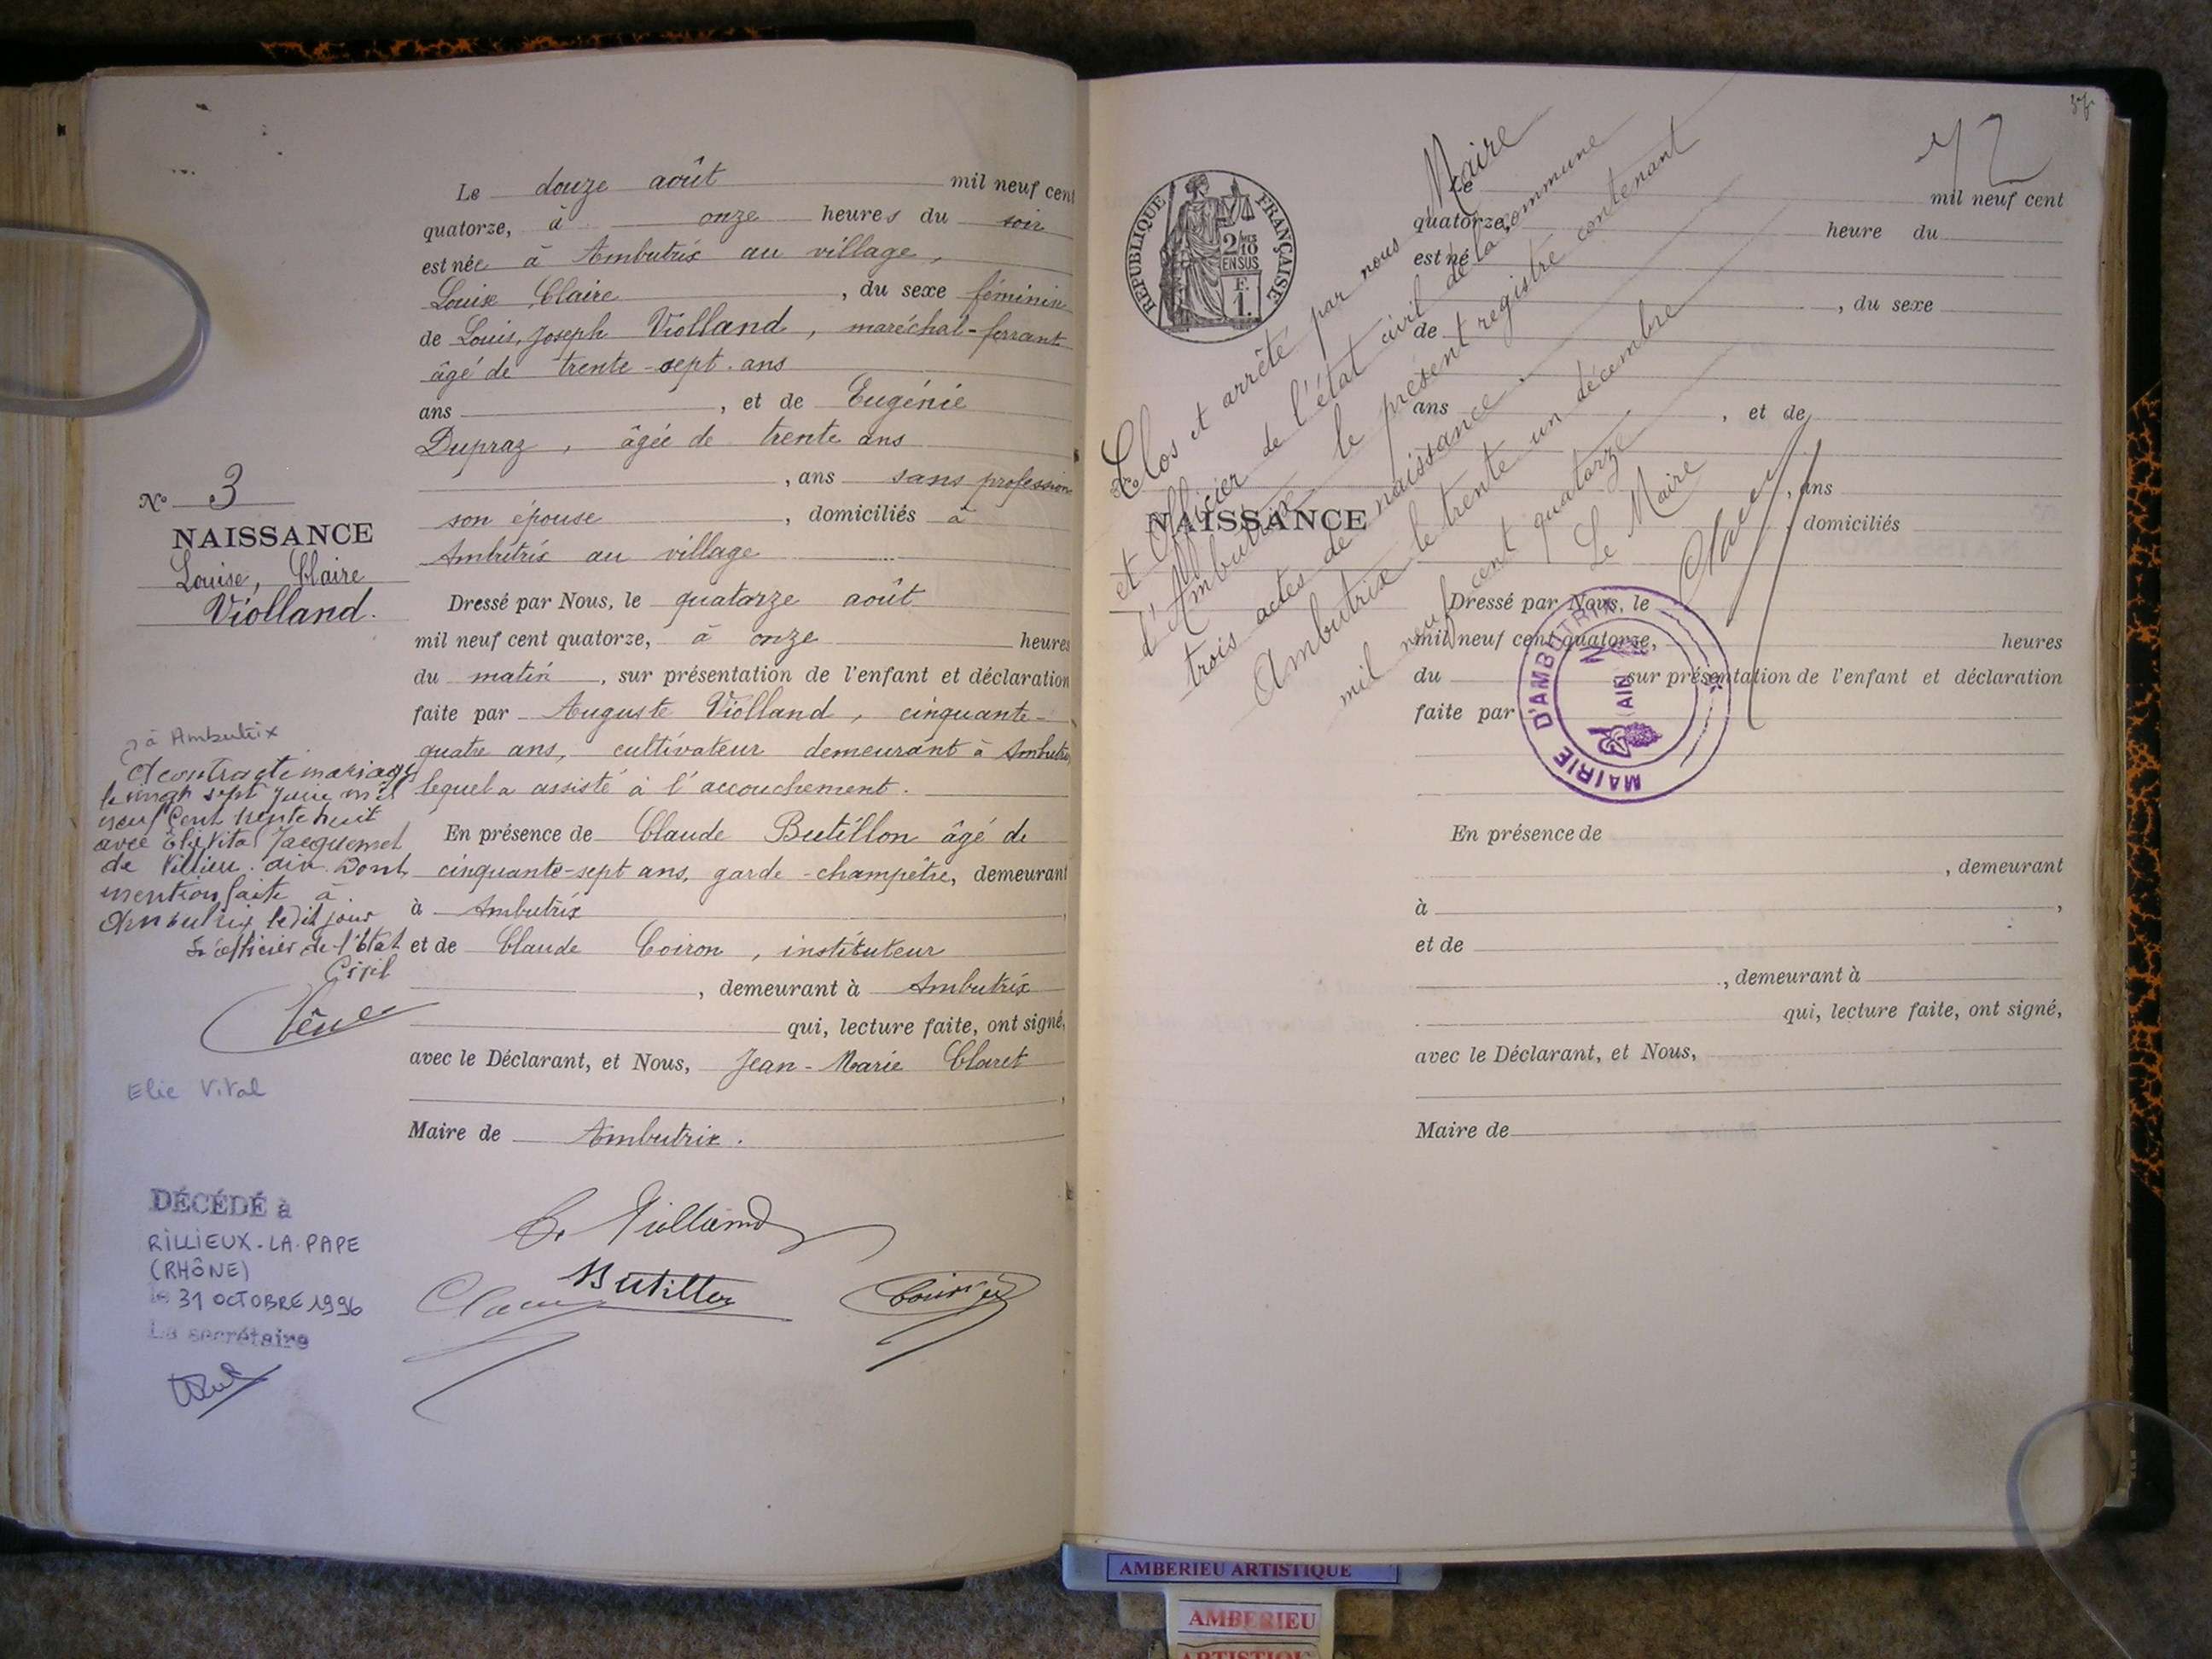 Le douze août mil neuf cent
quatorze, à onze heures du soir
est née à Ambutrix au village,
Louise Claire, du sexe féminin
de Louis, Joseph Violland, maréchal-ferrant
âgé de trente-sept ans
ans, et de Eugénie
Dupraz, âgée de trente ans
, ans sans profession
son épouse, domiciliés à
Ambutrix au village
Dressé par Nous, le quatorze août
mil neuf cent quatorze, à onze heures
du matin, sur présentation de l'enfant et déclaration
faite par Auguste Violland, cinquante-
quatre ans, cultivateur demeurant à Ambutrix
lequel a assisté à l'accouchement.
En présence de Claude Butillon âgé de
cinquante-sept ans, garde-champêtre, demeurant
à Ambutrix,
et de Claude Coiron, instituteur
, demeurant à Ambutrix
qui, lecture faite, ont signé,
avec le Déclarant, et Nous, Jean-Marie Claret
,
Maire de Ambutrix.
Violland
Butillon
Claret
Coiron
No 3
NAISSANCE
Louise, Claire
Violland.
à Ambutrix
A contracté mariage
le vingt sept Juin mil
neuf Cent trente huit
avec Elie Vital Jacquemet
de Villieu. ain. Dont
mention faite à
Ambutrix ledit jour
L'officier de l'Etat
Civil
Elie Vital
DÉCÉDÉ à
RILLIEUX-LA-PAPE
(RHÔNE)
le 31 OCTOBRE 1996
La secrétaire
72
RÉPUBLIQUE FRANÇAISE
2/10 EN SUS
F.
1.
Clos et arrêté par nous Maire
et Officier de l'état civil de la commune
d'Ambutrix le présent registre contenant
trois actes de naissance.
Ambutrix le trente un décembre
mil neuf cent quatorze
Le Maire
Claret
MAIRIE D'AMBUTRIX
(AIN)
Le mil neuf cent
quatorze, heure du
est né
, du sexe
de
ans, et de
No
NAISSANCE
, ans
, domiciliés
Dressé par Nous, le
mil neuf cent quatorze, heures
du sur présentation de l'enfant et déclaration
faite par
En présence de
, demeurant
à ,
et de
, demeurant à
qui, lecture faite, ont signé,
avec le Déclarant, et Nous,
Maire de
AMBERIEU ARTISTIQUE
AMBERIEU
ARTISTIQUE